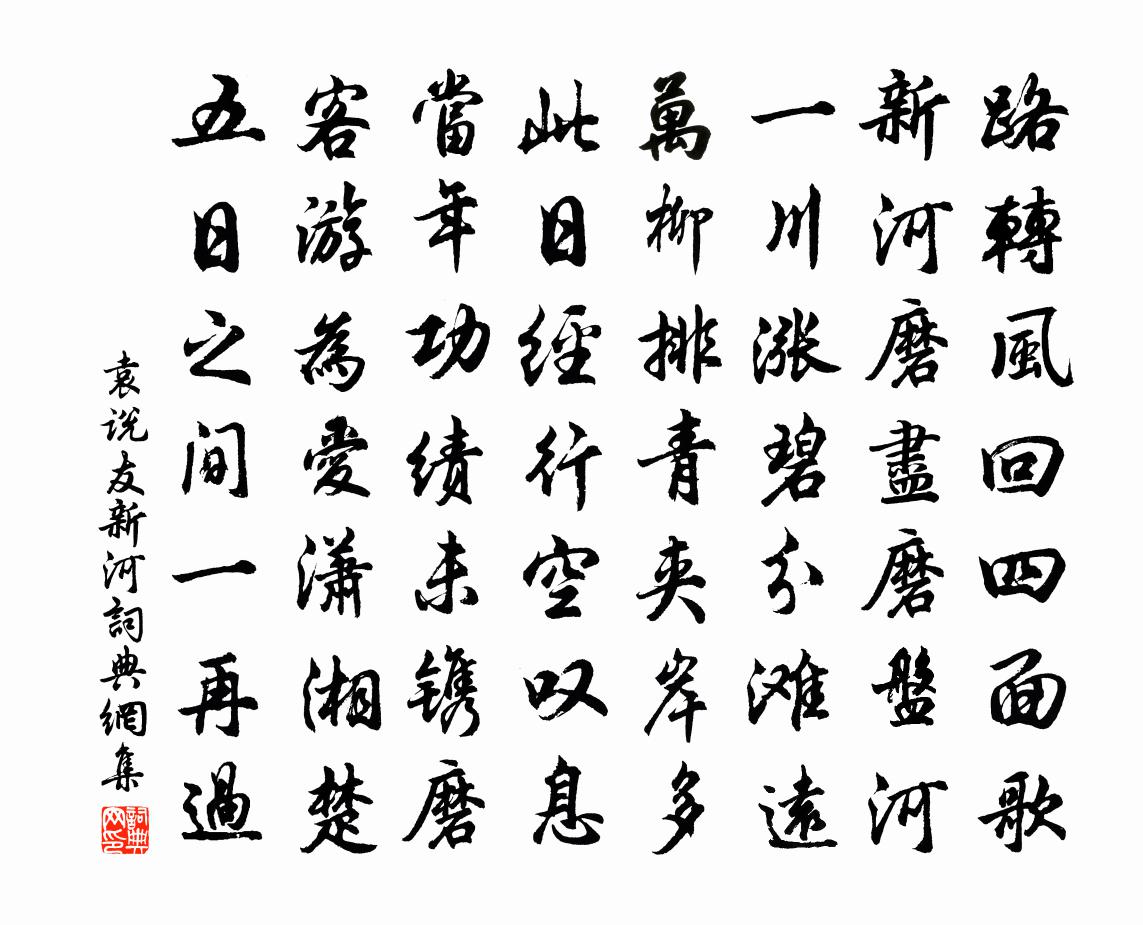 路轉風回四面歌
新河磨盡磨盤河
一川漲碧分滩遠
萬柳排青夾岸多
此日經行空叹息
當年功績未镌磨
客游為愛瀟湘楚
五日之間一再過
袁说友新河詞典網集
詞典网印